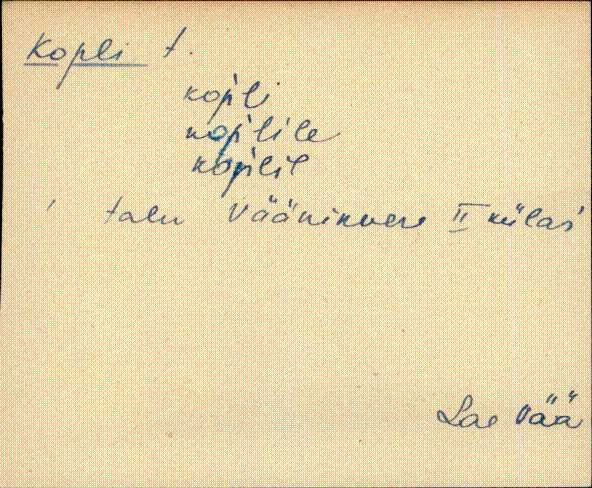 Kopli t.
kop̀li
kop̀lile
kop̀lil
talu Vääninvere II külas
Lae Vää